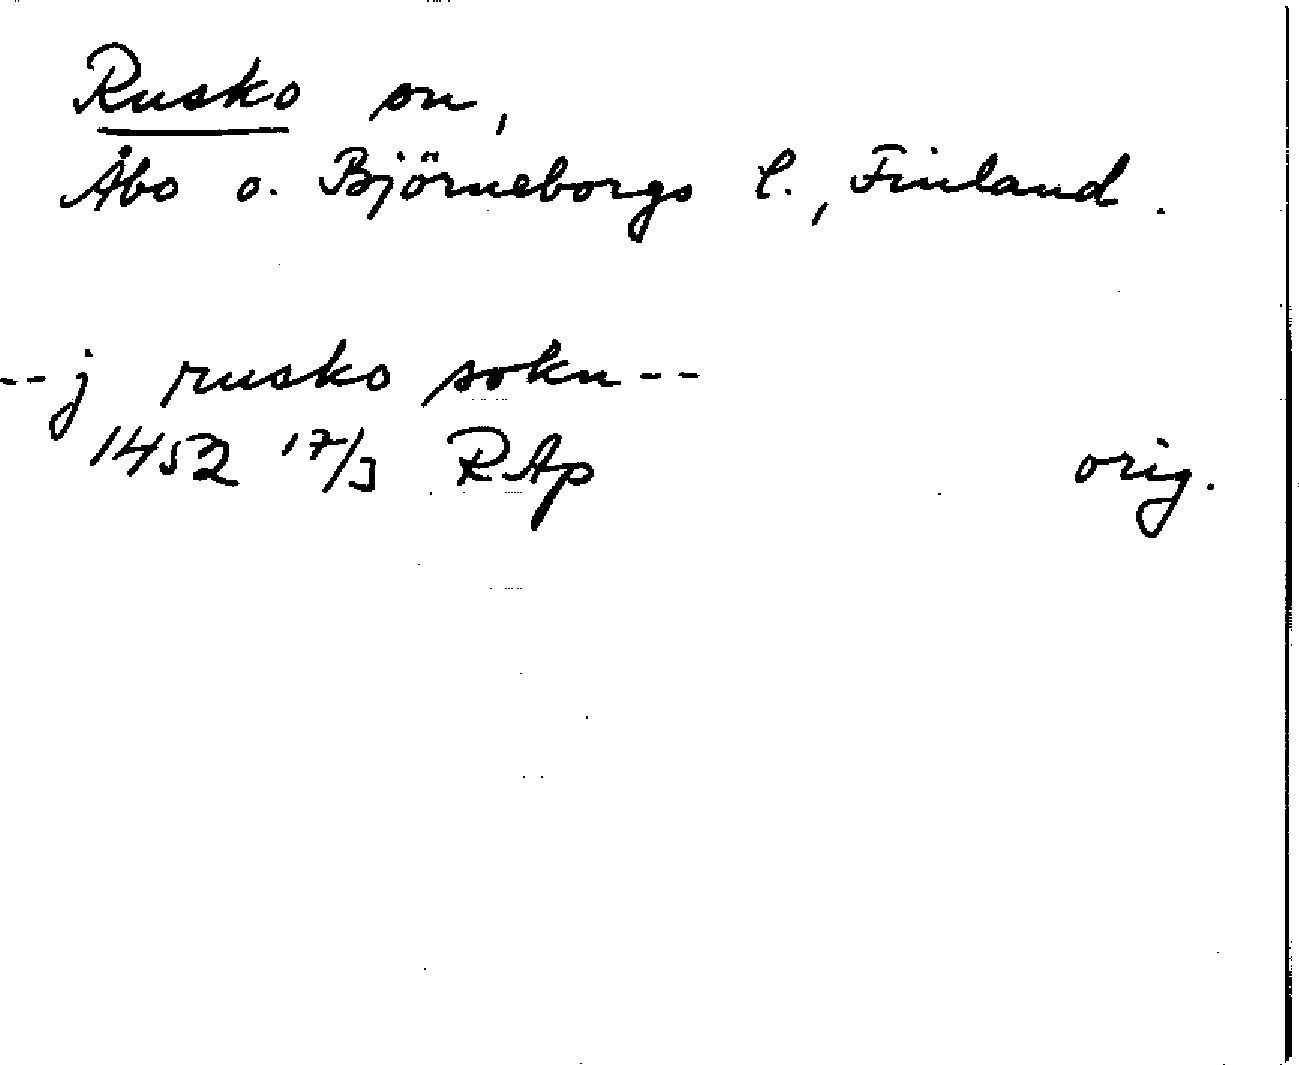 Rusko sn,
Åbo o. Björneborgs l., Finland.
--j rusko sokn--
1452 17/3 RAp orig.